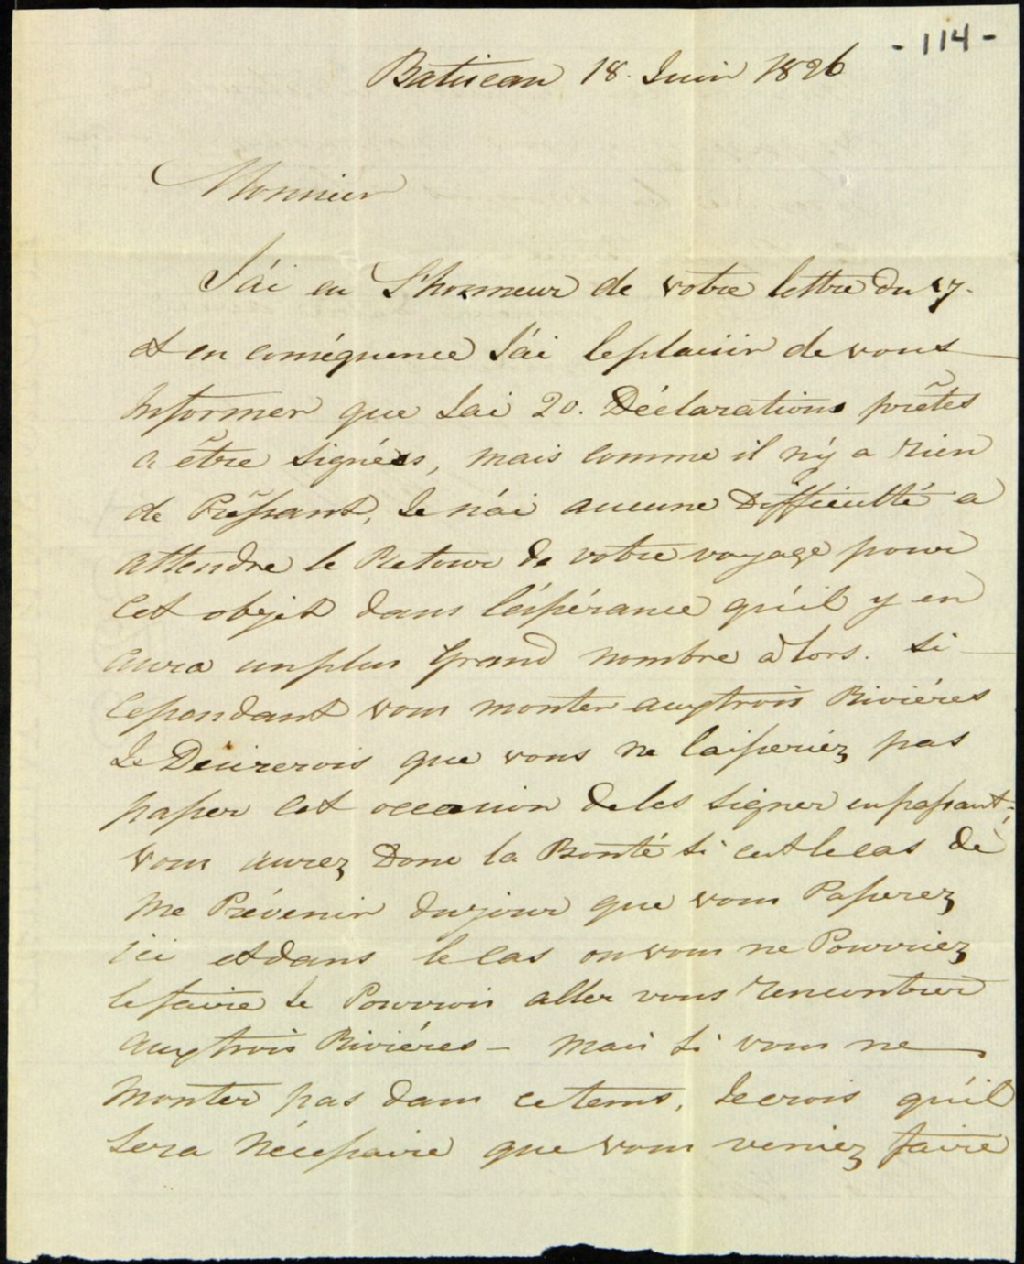 - 114 -
Batiscan 18. Juin 1826
Monsieur
J'ai eu L'honneur de votre lettre du 17.
et en conséquence J'ai le plaisir de vous
Informer que J'ai 20. Déclarations prêtes
a être Signées, mais comme il n'y a rien
de Préssant, Je n'ai aucune Difficulté a
attendre le Retour de votre voyage pour
cet objet dans l'éspérance qu'il y en
aura un plus Grand nombre alors. Si
Cependant vous monter aux trois Riviéres
Je Désirerois que vous ne laisseriéz pas
passer cet occasion de les signer en passant.
Vous aurez Donc la Bonté si c'est le cas de
Me Prévenir du jour que vous Passerez
ici et dans le cas ou vous ne Pourriez
le faire Je Pourrois aller vous rencontrer
aux trois Riviéres – Mais si vous ne
Monter pas dans ce tems, Je crois qu'il
Sera Nécessaire que vous veniez faire